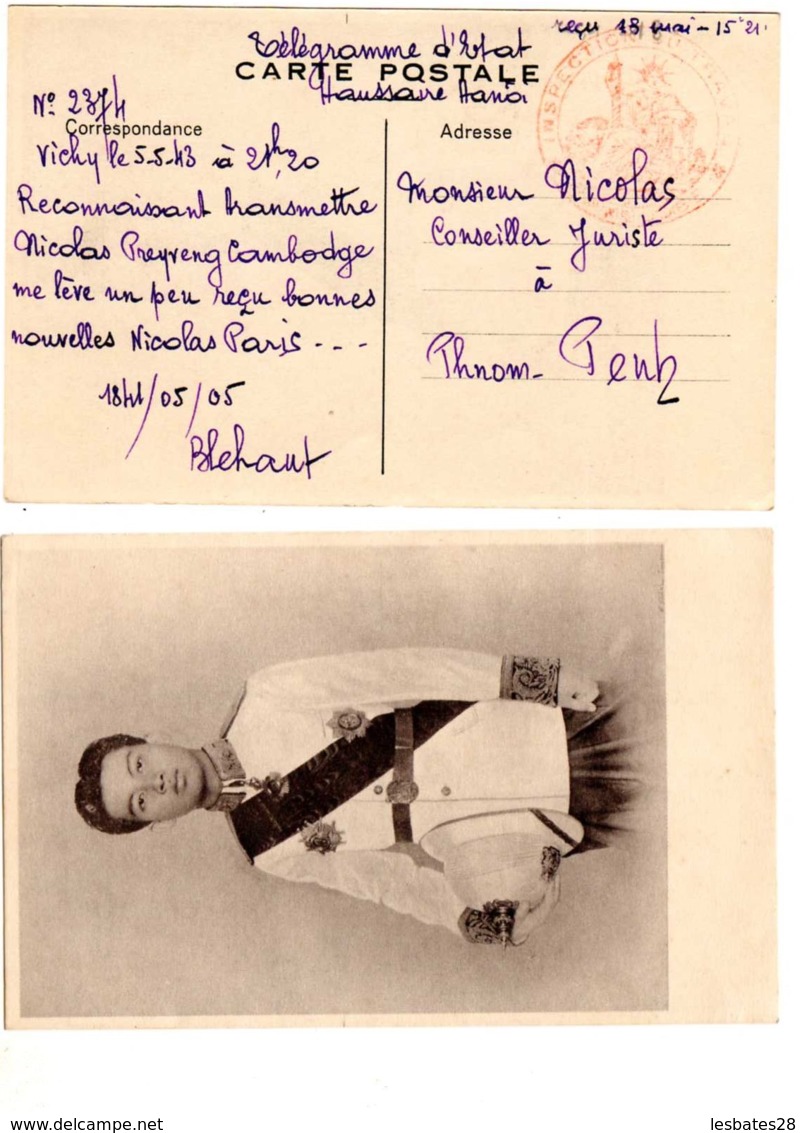 reçu 18 mai - 15 21.
Télégramme d'Etat
CARTE POSTALE
Haussaire Hanoï
N° 2374
Correspondance
Adresse
INSPECTION DU TRAV
Vichy le 5-5-43 à 21h,20
Reconnaissant transmettre
Nicolas Preyveng Cambodge
me lève un peu reçu bonnes
nouvelles Nicolas Paris - - -
1841/05/05
Blehaut
Monsieur Nicolas
Conseiller Juriste
à
Phnom-Penh
lesbates28